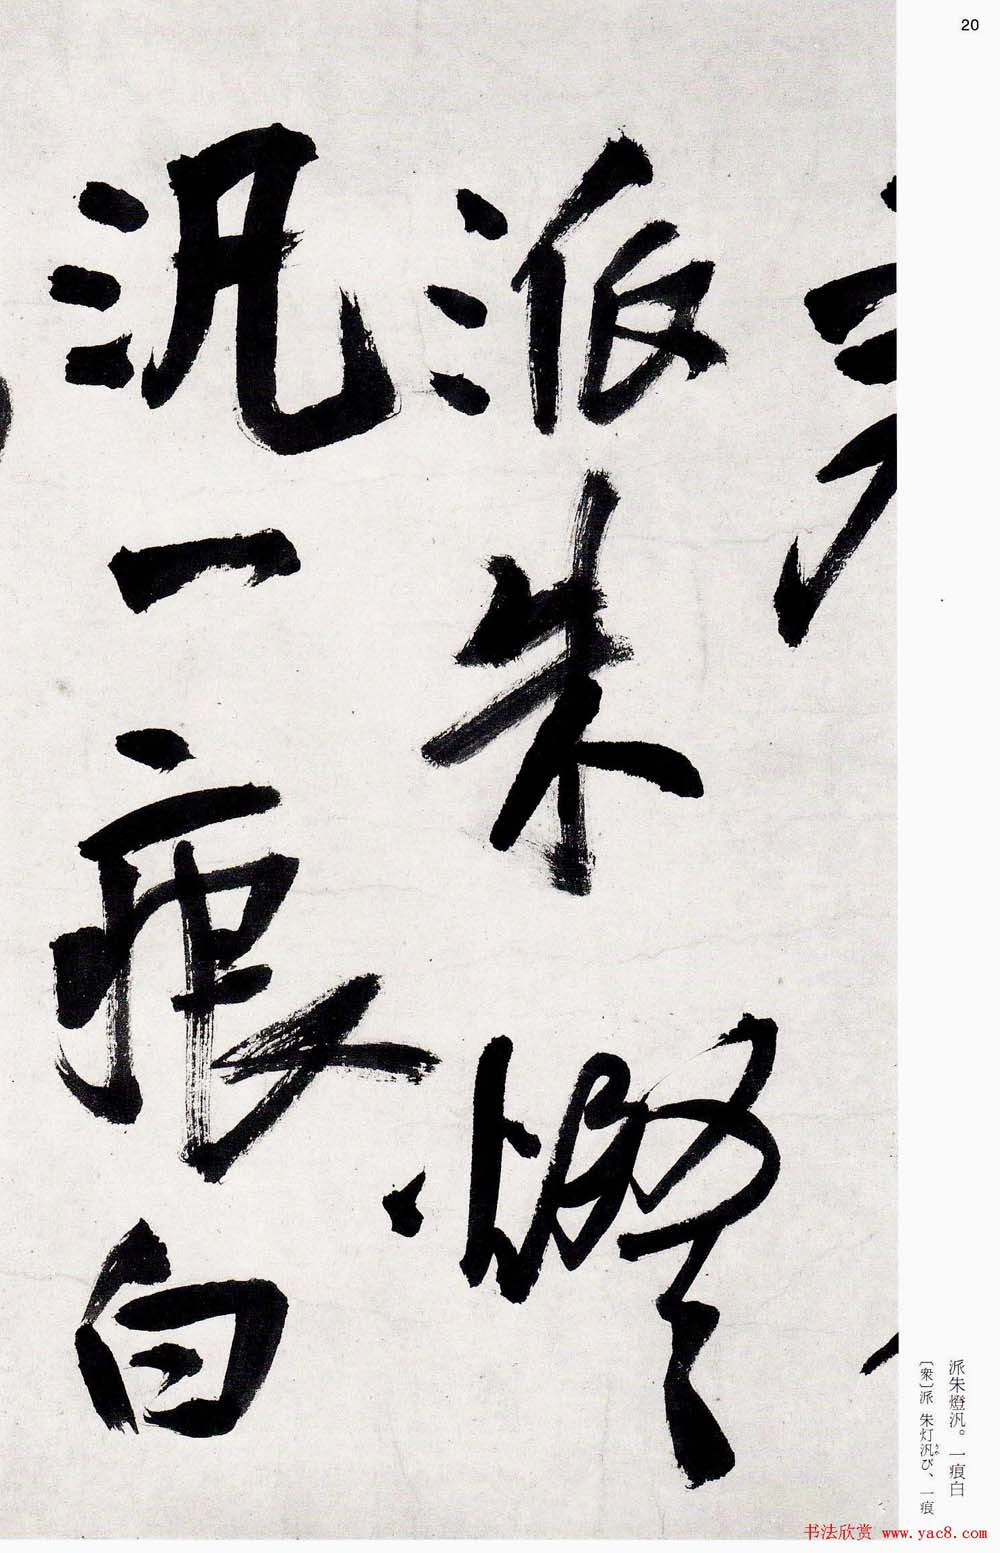 20
派朱燈
汎一痕白
派朱燈汎。一痕白
〔衆〕派 朱灯汎び、一痕
书法欣赏 www.yac8.com